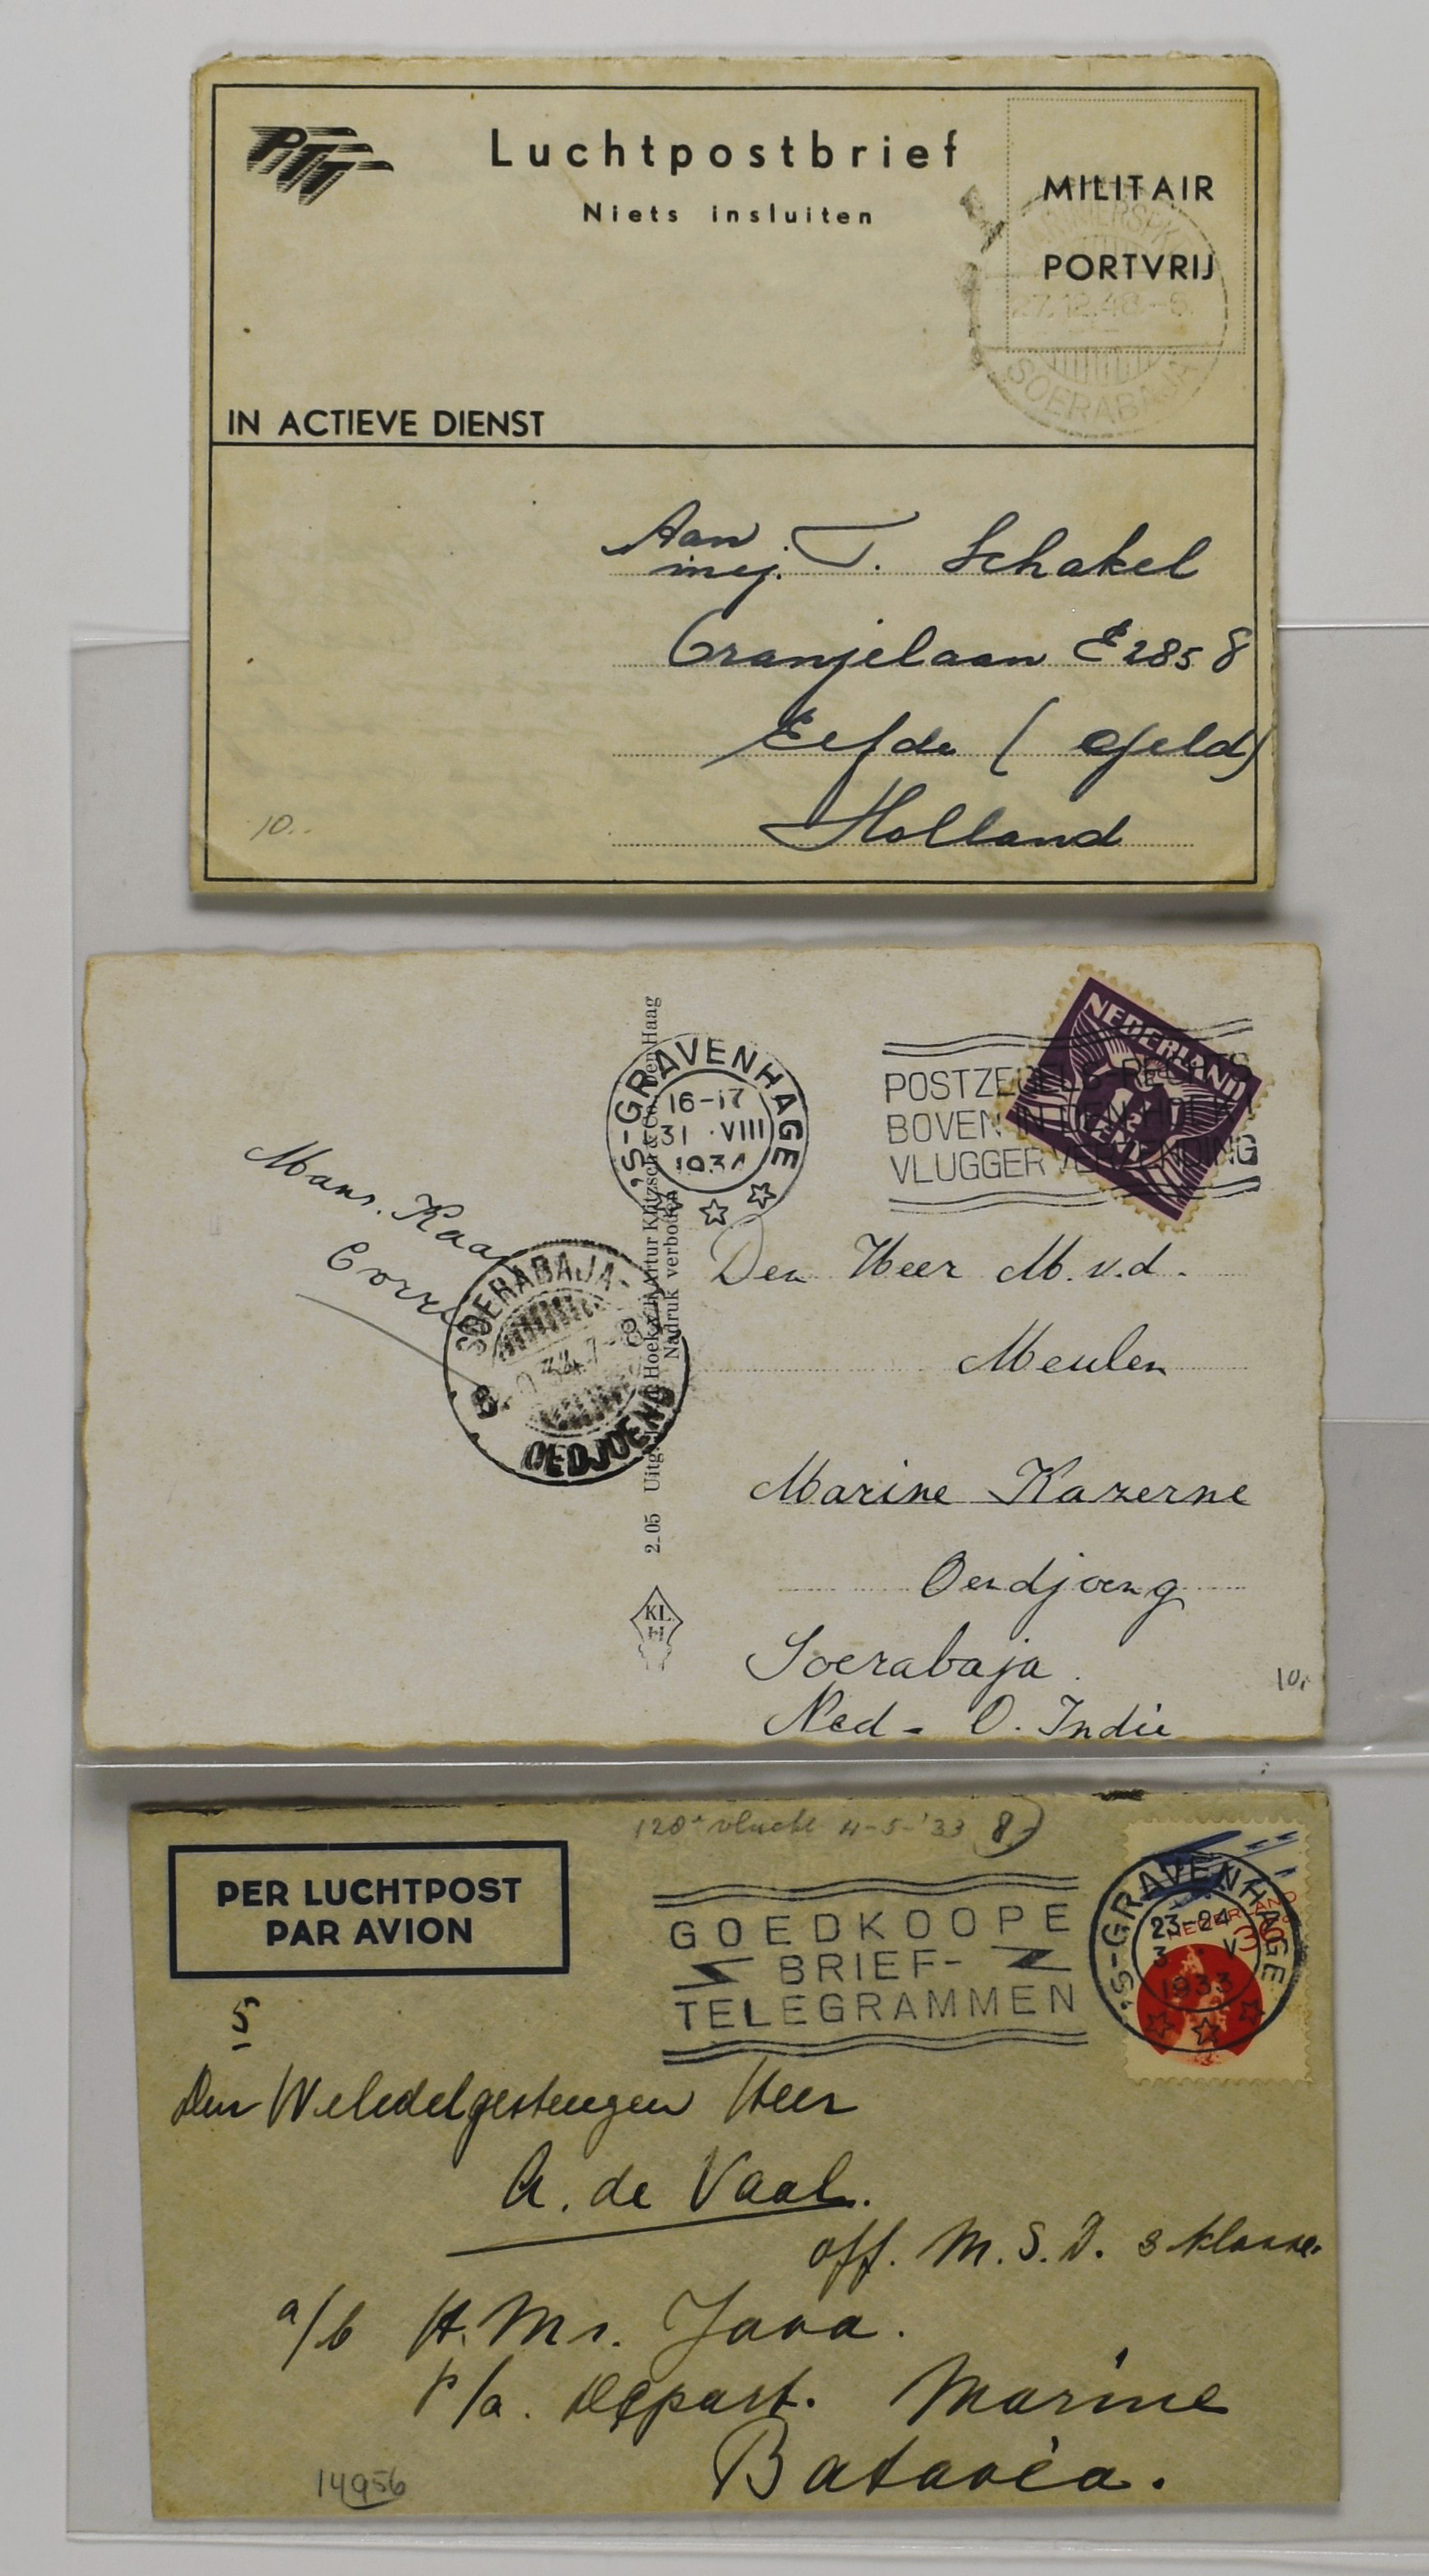 PTT
Luchtpostbrief
Niets insluiten
MILITAIR
PORTVRIJ
MARINIERSPK
27.12.48.-8.
SOERABAJA
IN ACTIEVE DIENST
Aan
mej. T. Schakel
Oranjelaan E 285 8
Eefde ( Geld)
Holland
10..
NEDERLAND
'S-GRAVENHAGE
16-17
31 VIII
POSTZEGELS RECHTS
BOVEN IN DEN HOEK
VLUGGER VERZENDING
Mans. Kaa
Corre
SOERABAJA-
OEDJOENG
2.05 Uitg. Hoekx Artur Klitzsch & Co. Den Haag
Nadruk verboden
KL
Den Heer M. v.d.
Meulen
Marine Kazerne
Oendjoeng
Soerabaja.
Ned - O. Indië
10,
120e vlucht 4-5-'33 8,-
PER LUCHTPOST
PAR AVION
GOEDKOOPE
BRIEF-
TELEGRAMMEN
'S-GRAVENHAGE
23-24
3 V
1933
NEDERLAND
5
Den Weledelgestrengen Heer
A. de Vaal.
off. M.S.D. 3 klasse.
a/b H. Ms. Java.
p/a. Depart. Marine
Batavia.
14956